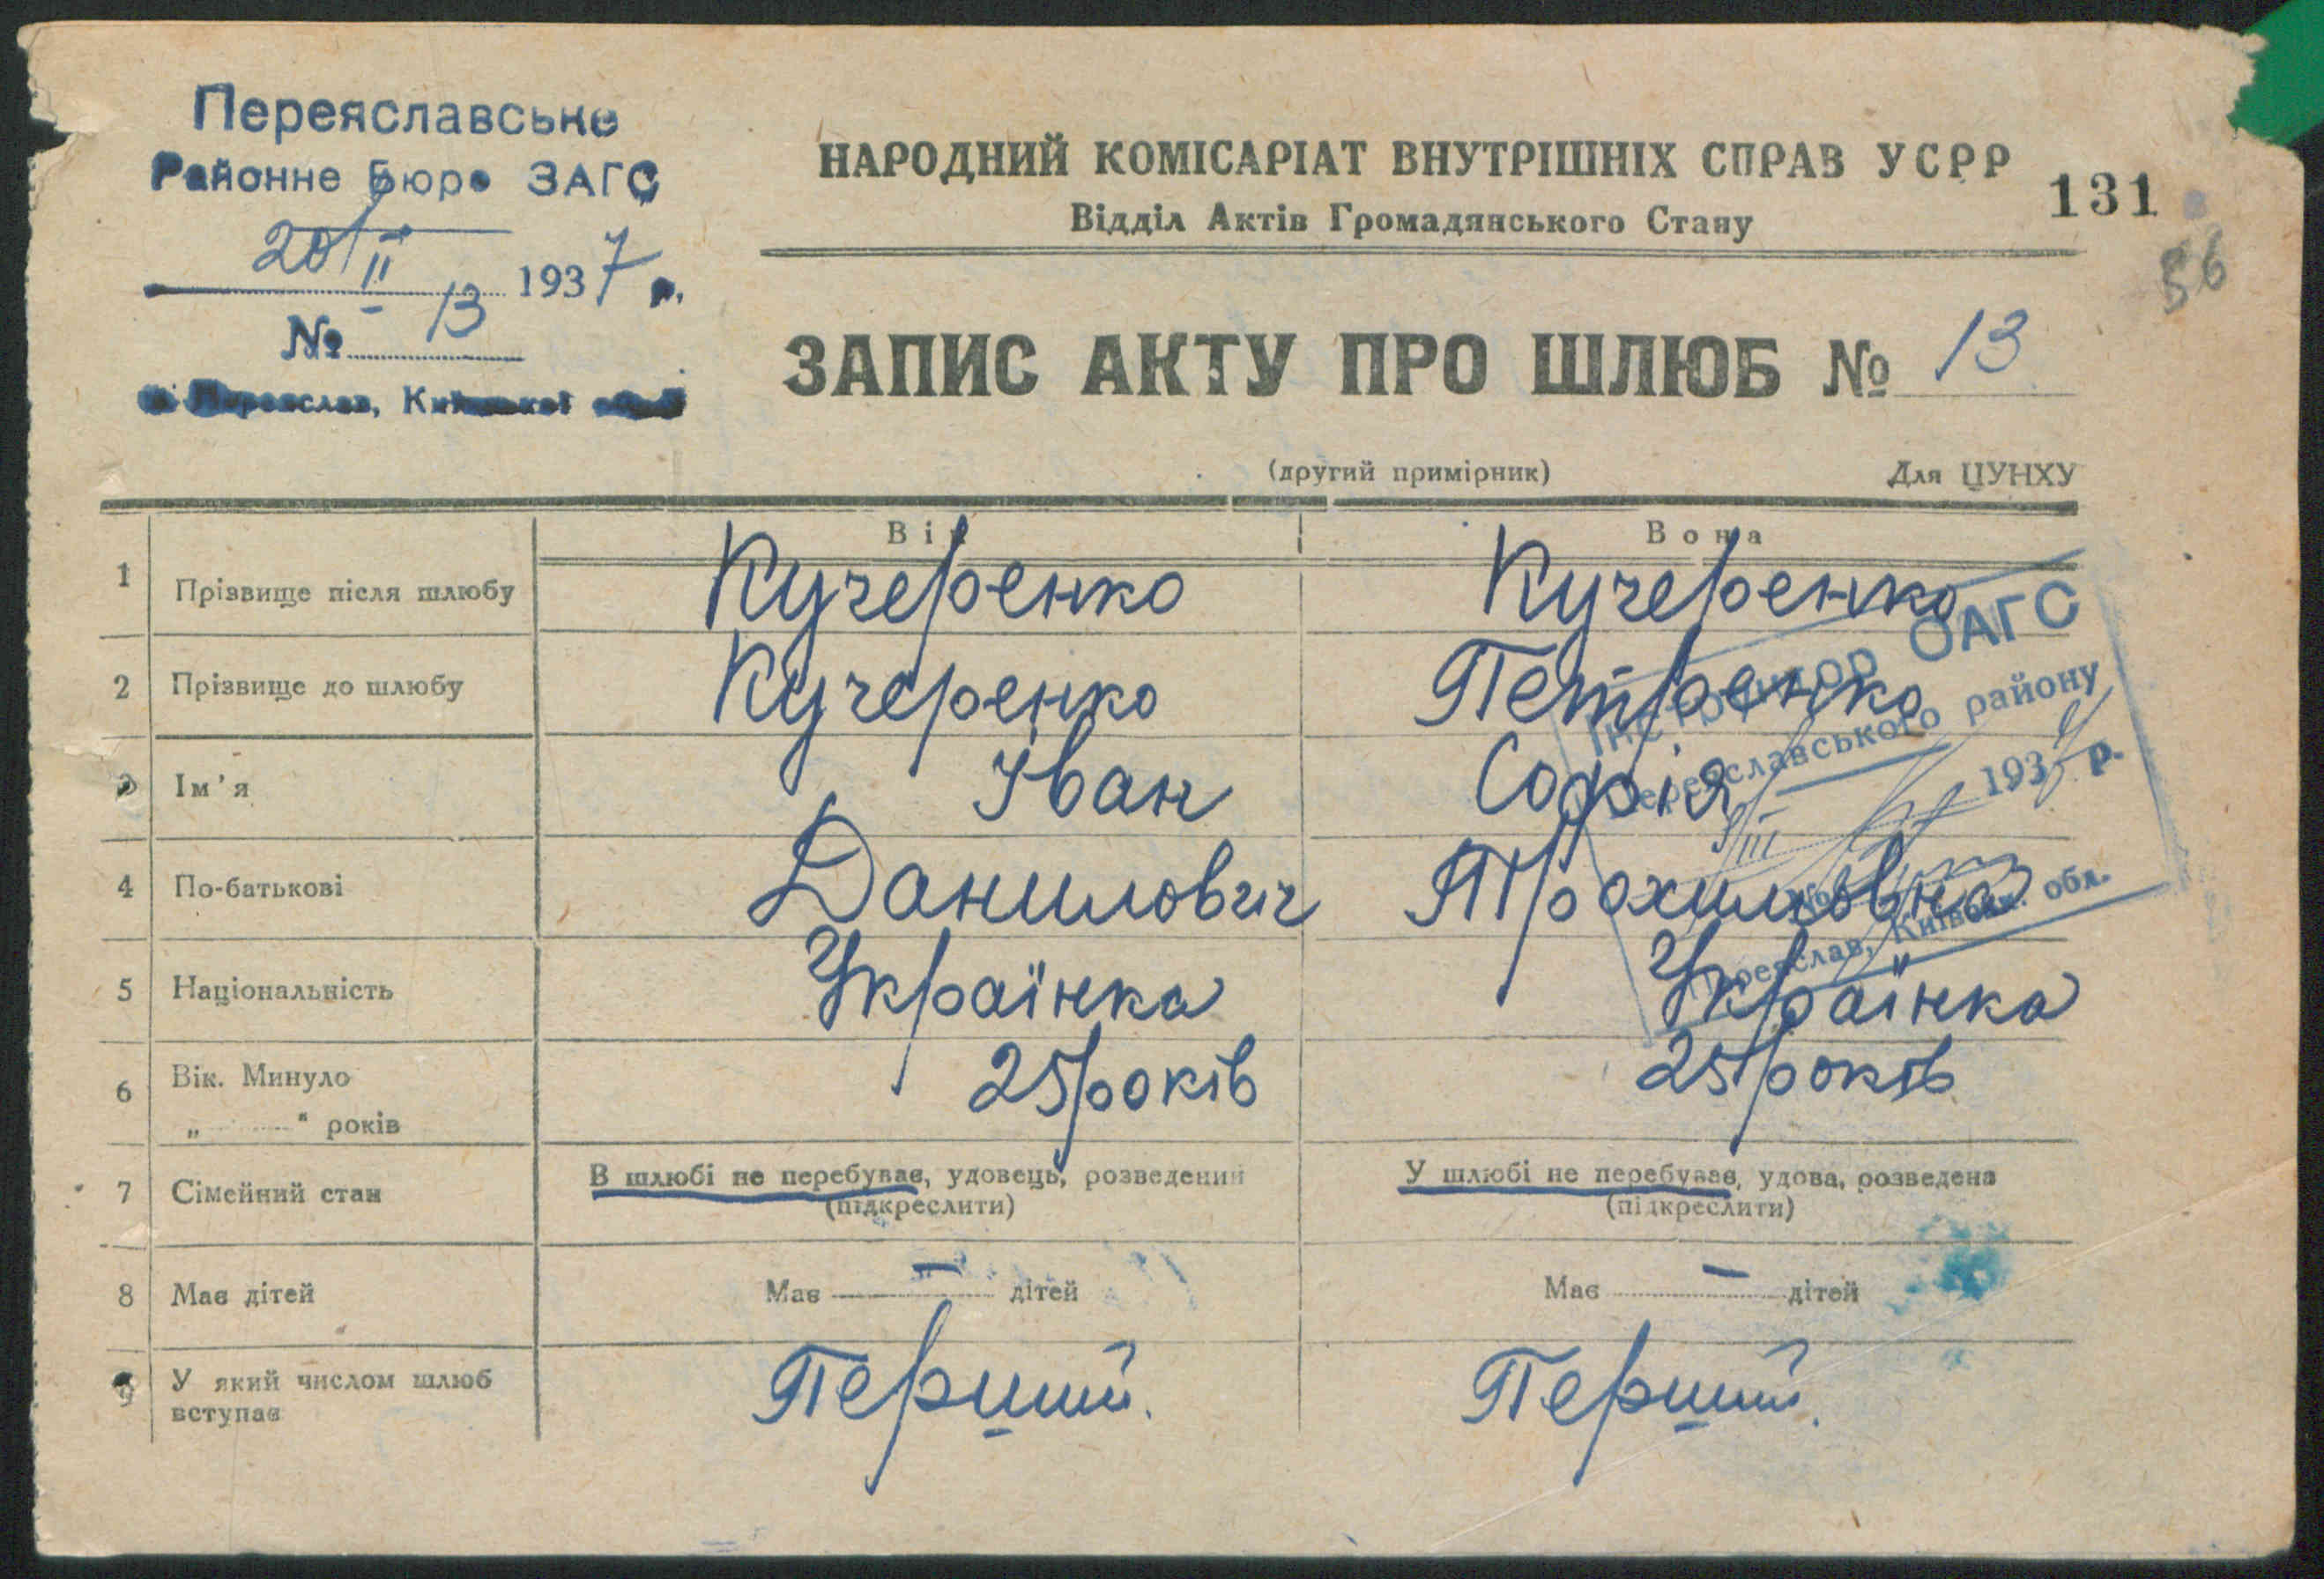 Переяславське
Районне Бюро ЗАГС
20/II 1937 р.
№ 13
м. Переяслав, Київської
НАРОДНИЙ КОМІСАРІАТ ВНУТРІШНІХ СПРАВ УСРР
131
Відділ Актів Громадянського Стану
56
ЗАПИС АКТУ ПРО ШЛЮБ № 13
(другий примірник) Для ЦУНХУ
Він Вона
1 Прізвище після шлюбу Кучеренко Кучеренко
2 Прізвище до шлюбу Кучеренко Петренко
3 Ім'я Іван Софія
4 По-батькові Данилович Трохимовна
5 Національність Українка Українка
6 Вік. Минуло 25 років 25 років
„ “ років
7 Сімейний стан В шлюбі не перебуває, удовець, розведений У шлюбі не перебуває, удова, розведена
(підкреслити) (підкреслити)
8 Має дітей Має — дітей Має — дітей
9 У який числом шлюб Перший. Перший.
вступає
Інструктор ОАГС
Переяславського району
III 1937 р.
№
Переяслав, Київськ. обл.